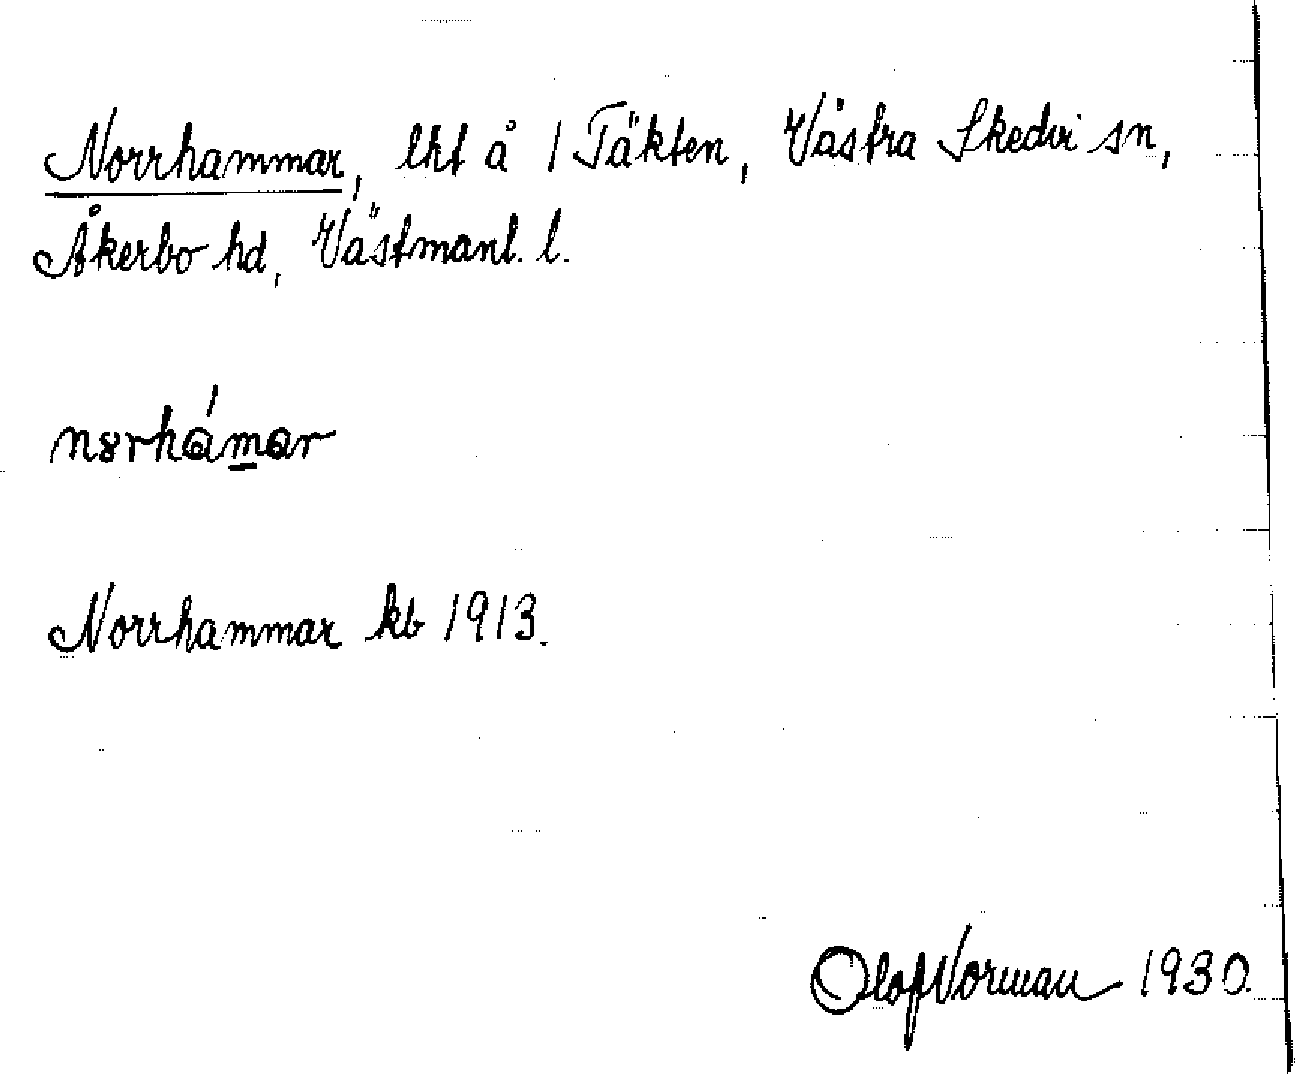 Norrhammar, lht å 1 Täkten, Västra Skedvi sn,
Åkerbo hd, Västmanl. l.
nɞrhámar
Norrhammar kb 1913.
Olof Norman 1930.